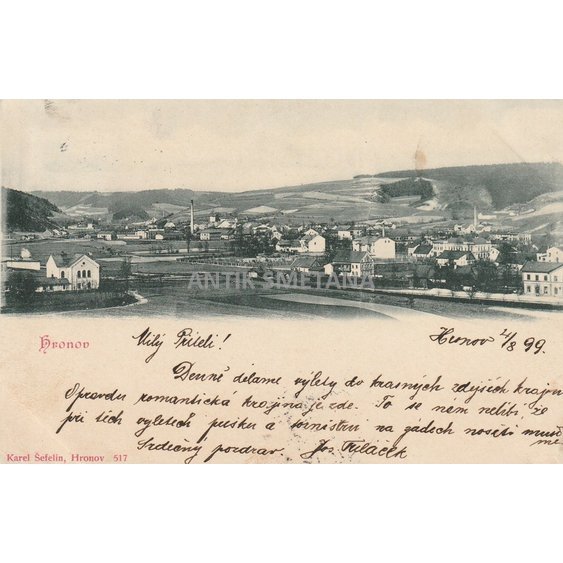 ANTIK SMETANA
Hronov
Milý Příteli!
Hronov 4/8 99.
Denně děláme výlety do krásných zdejších krajin
Opravdu romantická krajina je zde. To se nám nelíbí že
při těch výletech pušku a munici na zádech nositi mus
me
Srdečný pozdrav Jos.
Karel Šefelin, Hronov 517